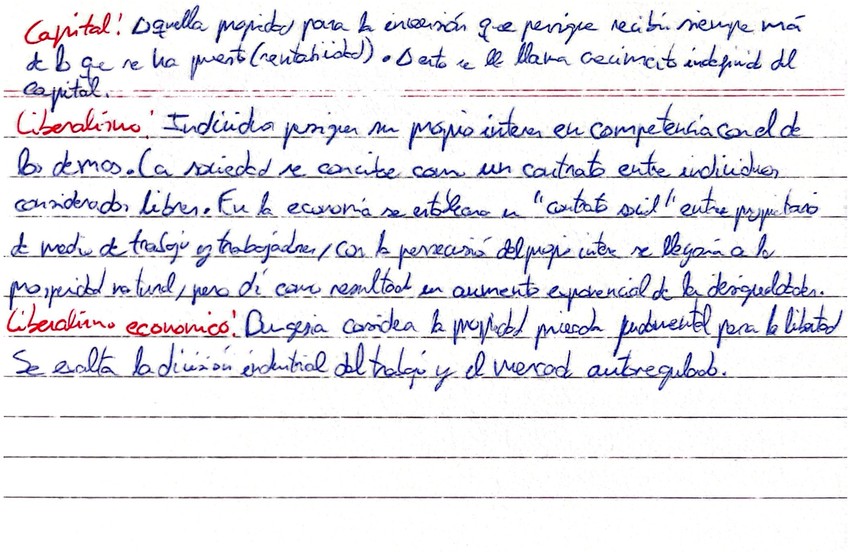 Capital: Aquella propiedad para la inversión que persigue recibir siempre más
de lo que se ha puesto (rentabilidad). A esto se le llama crecimiento indefinido del
capital.
Liberalismo: Individuo persigue su propio interes en competencia con el de
los demas. La sociedad se concibe como un contrato entre individuos
considerados libres. En la economía se establece un "contrato social" entre propietario
de medios de trabajo y trabajadores, con la persecusión del propio interes se llegaria a la
prosperidad natural, pero dió como resultado un aumento exponencial de la desigualdades.
Liberalismo economico: Burgesia considea la propiedad privada fundamental para la libertad
Se exalta la división industrial del trabajo y el mercado autoregulado.